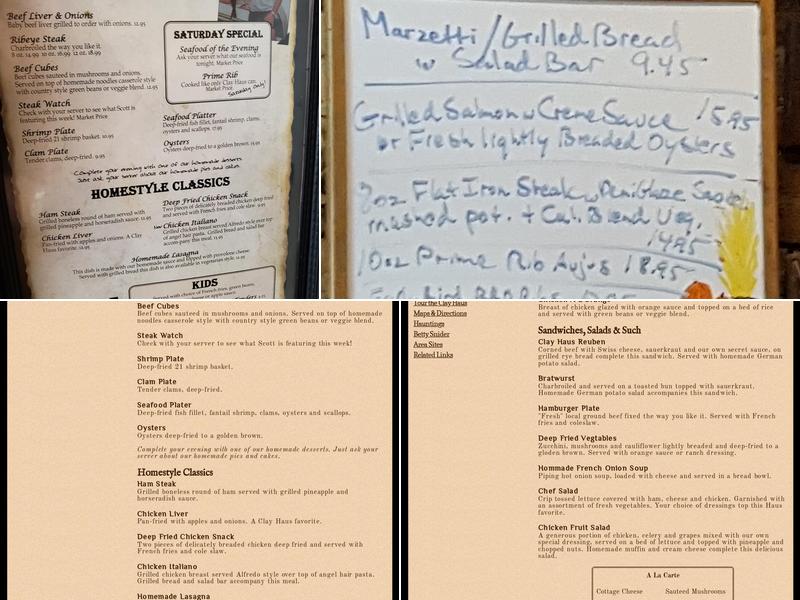 Beef Liver & Onions
Baby beef liver grilled to order with onions. 12.95
Ribeye Steak
Charbroiled the way you like it.
Beef Cubes
Beef cubes sauteed in mushrooms and onions.
Served on top of homemade noodles casserole style
with country style green beans or veggie blend.
Steak Watch
Check with your server to see what Scott is
featuring this week! Market Price
Shrimp Plate
Deep-fried 21 shrimp basket.
Clam Plate
Tender clams, deep-fried. 9.95
SATURDAY SPECIAL
Seafood of the Evening
Ask your server what our seafood is
tonight. Market Price
Prime Rib
Cooked like only Clay Haus can.
Market Price
Saturday Only!
Seafood Platter
Deep-fried fish fillet, fantail shrimp, clams,
oysters and scallops.
Oysters
Oysters deep-fried to a golden brown.
Complete your evening with one of our homemade desserts.
Just ask your server about our homemade pies and cakes.
HOMESTYLE CLASSICS
Ham Steak
Grilled boneless round of ham served with
grilled pineapple and horseradish sauce.
Chicken Liver
Pan-fried with apples and onions. A Clay
Haus favorite.
Deep Fried Chicken Snack
Two pieces of delicately breaded chicken deep fried
and served with French fries and cole slaw.
Chicken Italiano
Grilled chicken breast served Alfredo style over top
of angel hair pasta. Grilled bread and salad bar
accompany this meal.
Homemade Lasagna
This dish is made with our homemade sauce and topped with provolone cheese.
Served with grilled bread this dish is also available in vegetarian style.
KIDS
Marzetti/Grilled Bread
w Salad Bar 9.45
Grilled Salmon w Creme Sauce 15.95
or Fresh lightly Breaded Oysters
Flat Iron Steak w Demiglaze
mashed pot. + Cal. Blend Veg.
14.95
10oz Prime Rib Aujus 18.95
Beef Cubes
Beef cubes sauteed in mushrooms and onions. Served on top of homemade
noodles casserole style with country style green beans or veggie blend.
Steak Watch
Check with your server to see what Scott is featuring this week!
Shrimp Plate
Deep-fried 21 shrimp basket.
Clam Plate
Tender clams, deep-fried.
Seafood Plater
Deep-fried fish fillet, fantail shrimp, clams, oysters and scallops.
Oysters
Oysters deep-fried to a golden brown.
Complete your evening with one of our homemade desserts. Just ask your
server about our homemade pies and cakes.
Homestyle Classics
Ham Steak
Grilled boneless round of ham served with grilled pineapple and
horseradish sauce.
Chicken Liver
Pan-fried with apples and onions. A Clay Haus favorite.
Deep Fried Chicken Snack
Two pieces of delicately breaded chicken deep fried and served with
French fries and cole slaw.
Chicken Italiano
Grilled chicken breast served Alfredo style over top of angel hair pasta.
Grilled bread and salad bar accompany this meal.
Homemade Lasagna
Tour the Clay Haus
Maps & Directions
Hauntings
Betty Snider
Area Sites
Related Links
Breast of chicken glazed with orange sauce and topped on a bed of rice
and served with green beans or veggie blend.
Sandwiches, Salads & Such
Clay Haus Reuben
Corned beef with Swiss cheese, sauerkraut and our own secret sauce, on
grilled rye bread complete this sandwich. Served with homemade German
potato salad.
Bratwurst
Charbroiled and served on a toasted bun topped with sauerkraut.
Homemade German potato salad accompanies this sandwich.
Hamburger Plate
"Fresh" local ground beef fixed the way you like it. Served with French
fries and coleslaw.
Deep Fried Vegtables
Zucchini, mushrooms and cauliflower lightly breaded and deep-fried to a
gloden brown. Served with orange sauce or ranch dressing.
Hommade French Onion Soup
Piping hot onion soup, loaded with cheese and served in a bread bowl.
Chef Salad
Crip tossed lettuce covered with ham, cheese and chicken. Garnished with
an assortment of fresh vegetables. Your choice of dressings top this house
favorite.
Chicken Fruit Salad
A generous portion of chicken, celery and grapes mixed with our own
special dressing, served on a bed of lettuce and topped with pineapple and
chopped nuts. Homemade muffin and cream cheese complete this delicious
salad.
A La Carte
Cottage Cheese
Sauteed Mushrooms